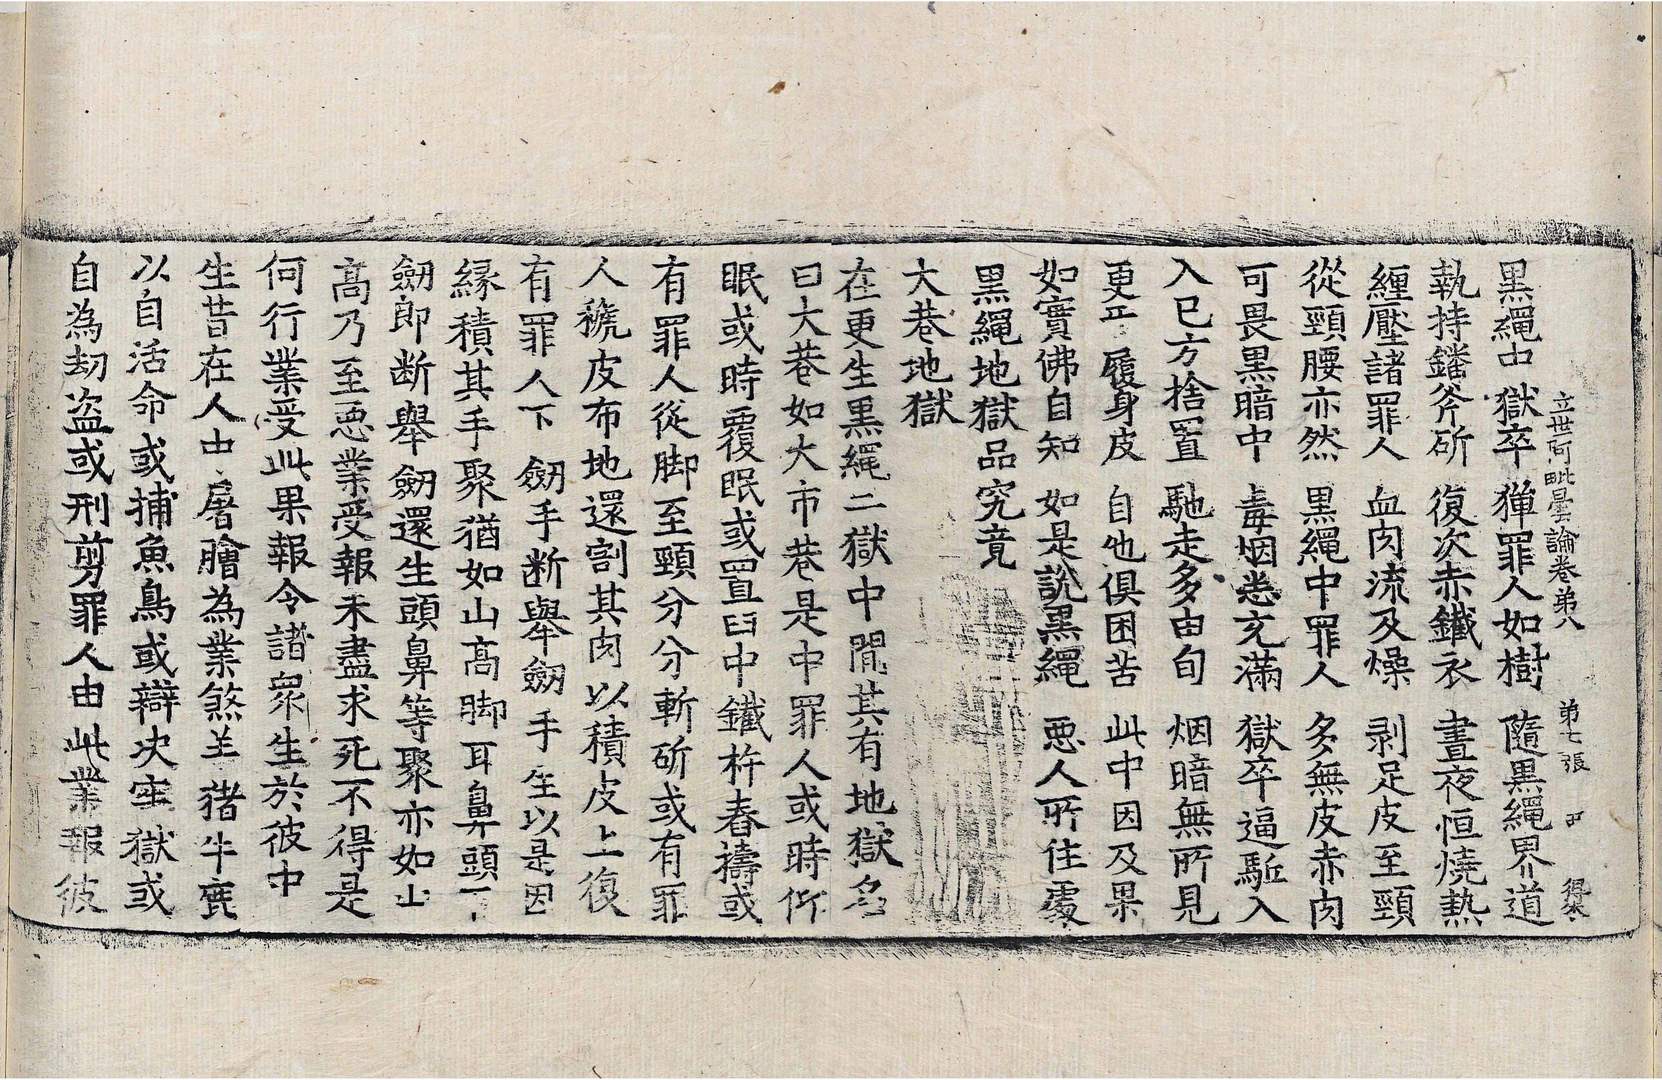 立世阿毗曇論卷第八　第七張
黑繩中獄卒　獋罪人如樹　隨黑繩界道
執持鑊斧斫　復次赤鐵衣　晝夜恒燒熱
纏壓諸罪人　血肉流及燥　剥足皮至頸
從頸腰亦然　黑繩中罪人　多無皮赤肉
可畏黑暗中　毒烟悉充滿　獄卒逼駈入
入已方捨置　馳走多由旬　烟暗無所見
更平履身皮　自他俱困苦　此中因及果
如實佛自知　如是說黑繩　惡人所住處
黑繩地獄品究竟
大巷地獄
在更生黑繩二獄中間其有地獄名
曰大巷如大市巷是中罪人或時仰
眠或時覆眠或置臼中鐵杵舂擣或
有罪人從脚至頸分分斬斫或有罪
人褫皮布地還割其肉以積皮上復
有罪人下劒手斷舉劒手生以是因
緣積其手聚猶如山高脚耳鼻頭下
劒即断舉劒還生頭鼻等聚亦如山
高乃至惡業受報未盡求死不得是
何行業受此果報令諸眾生於彼中
生昔在人中屠膾為業煞羊猪牛鹿
以自活命或捕魚鳥或辯决牢獄或
自為劫盗或刑剪罪人由此業報彼